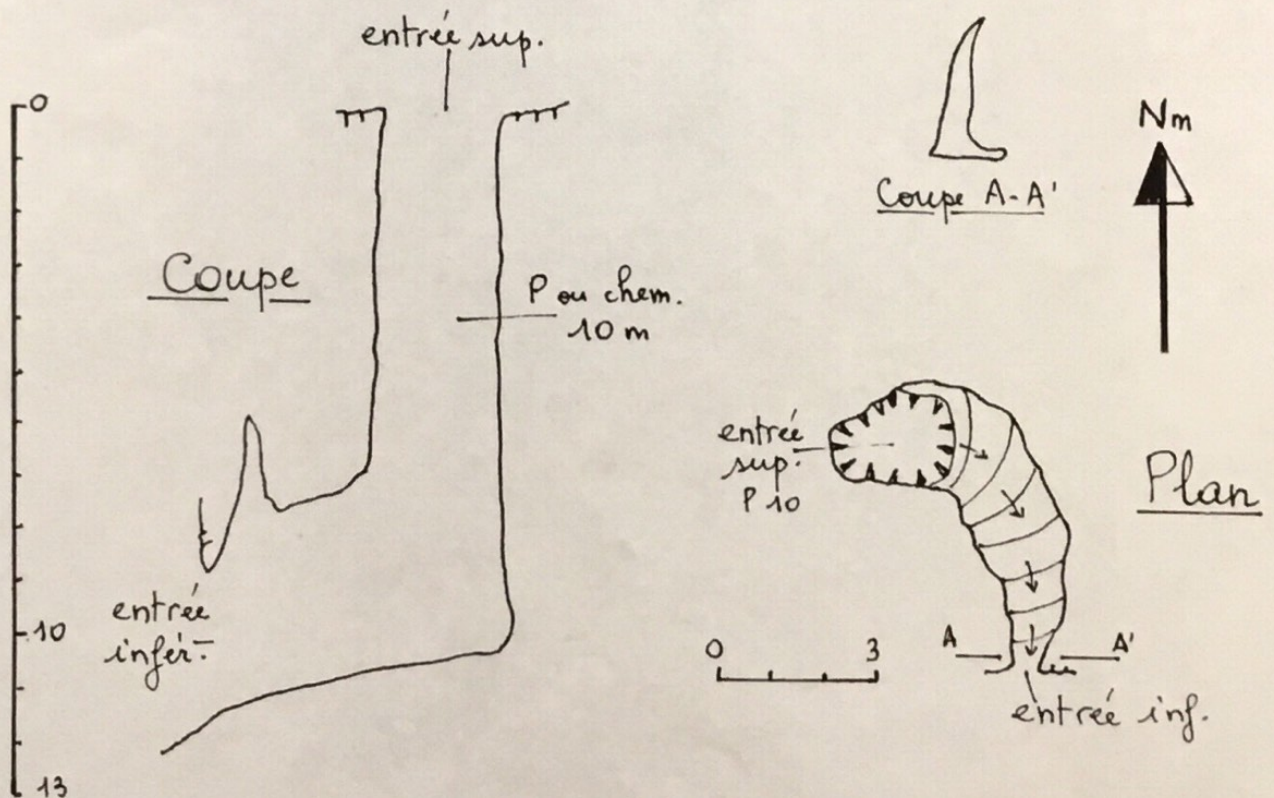 entrée sup.
0
Coupe
P ou chem.
10 m
entrée
infér.
10
13
Coupe A-A'
Nm
entrée
sup.
P 10
Plan
0 3
A A'
entrée inf.